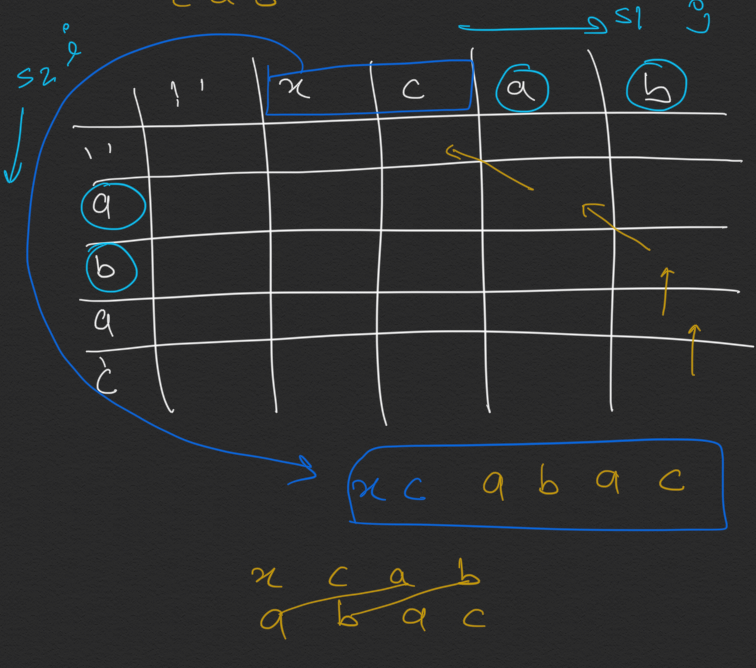 s1 j
s2 i
'' x c a b
''
a
b
a
c
x c a b a c
x c a b
a b a c